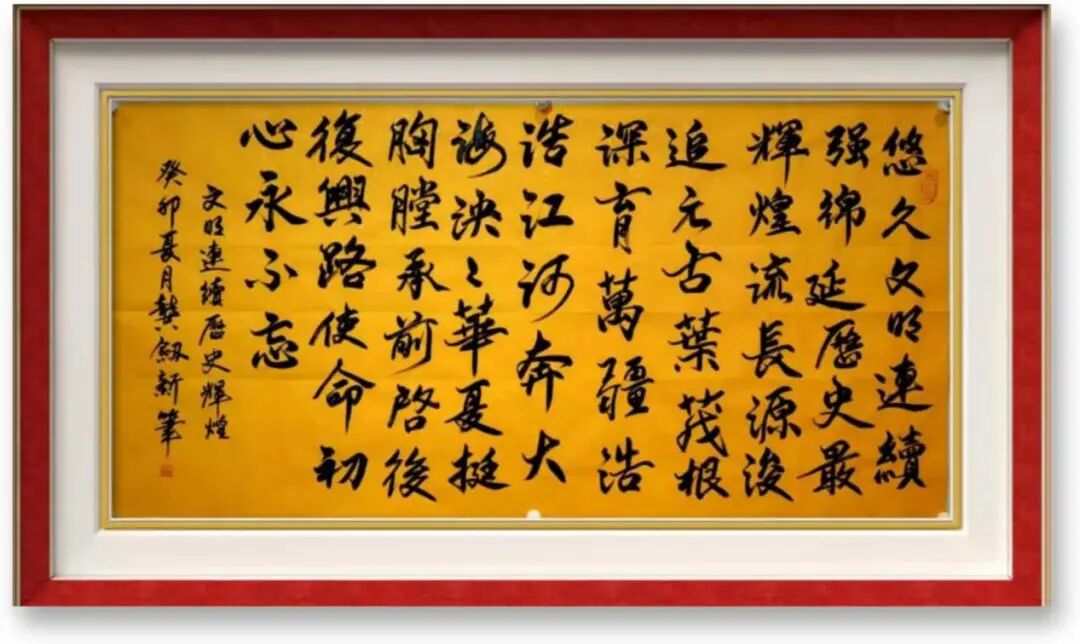 悠久文明連續
强綿延歷史最
輝煌流長源浚
追元古葉茂根
深育萬疆浩
浩江河奔大
海泱〻華夏挺
胸膛承前啓後
復興路使命初
心永不忘
文明連續歷史輝煌
癸卯夏月龔劔新筆